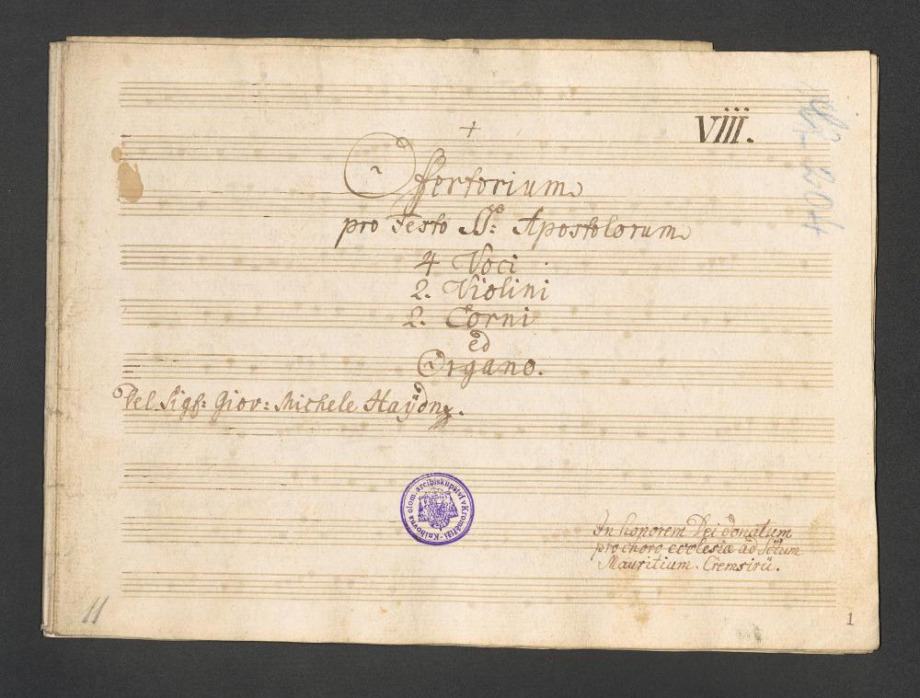 VIII.
Offertorium
pro Festo SS: Apostolorum
4 Voci
2. Violini
2. Corni
ed
Organo.
Del Sigř: Giov: Michele Haydn.
Knihovna olom. arcibiskupství v Kroměříži
In honorem Dei donatum
pro choro ecclesiæ ad Sctum
Mauritium Cremsirii.
11
1